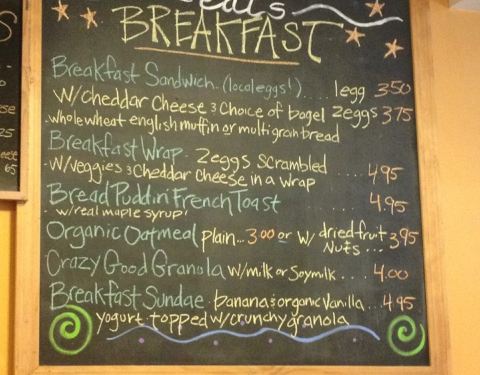 eals
BREAKFAST
Breakfast Sandwich. (local eggs!).... 1egg 3.50
W/Cheddar Cheese & Choice of bagel 2eggs 3.75
whole wheat english muffin or multigrain bread
Breakfast Wrap - 2eggs scrambled
w/veggies & Cheddar Cheese in a wrap .... 4.95
Bread Puddin' French Toast .... 4.95
w/real maple syrup!
Organic Oatmeal plain... 3.00 or w/ dried fruit 3.95
nuts...
Crazy Good Granola w/milk or Soymilk .... 4.00
Breakfast Sundae banana & organic Vanilla... 4.95
yogurt topped w/crunchy granola
S
ese
25
eese
65